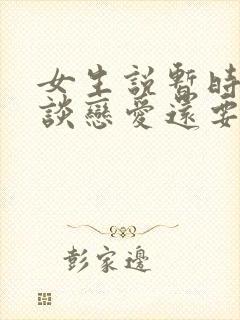 女生說暫時
談戀愛還要
彭家邊